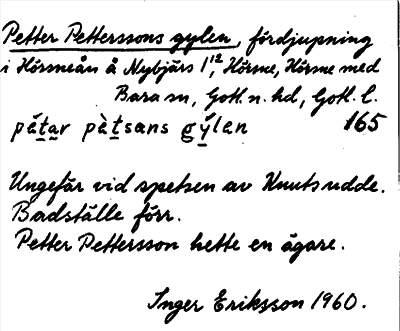 Petter Petterssons gylen, fördjupning
i Hörsneån å Nybjärs 1¹², Hörsne, Hörsne med
Bara sn, Gotl. n. hd, Gotl. l.
pä́tar pàtsans gýlan 165
Ungefär vid spetsen av Knuts udde.
Badställe förr.
Petter Pettersson hette en ägare.
Inger Eriksson 1960.